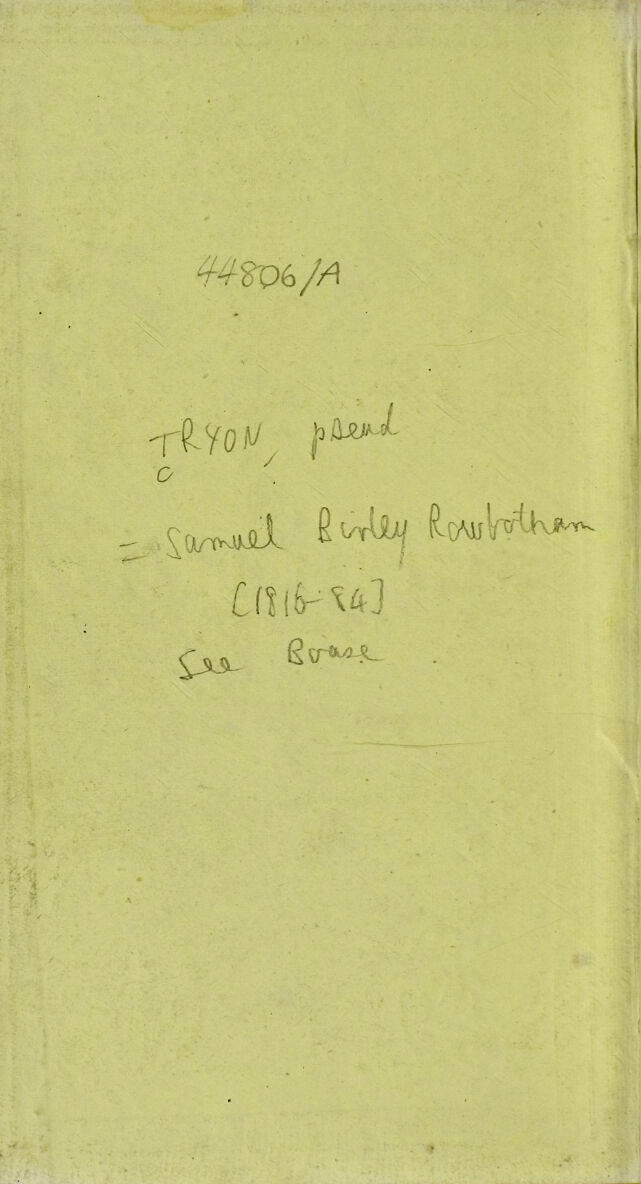 44806/A
TRYON, pseud
C
= Samuel Birley Rowbotham
[1816-84]
See Boase